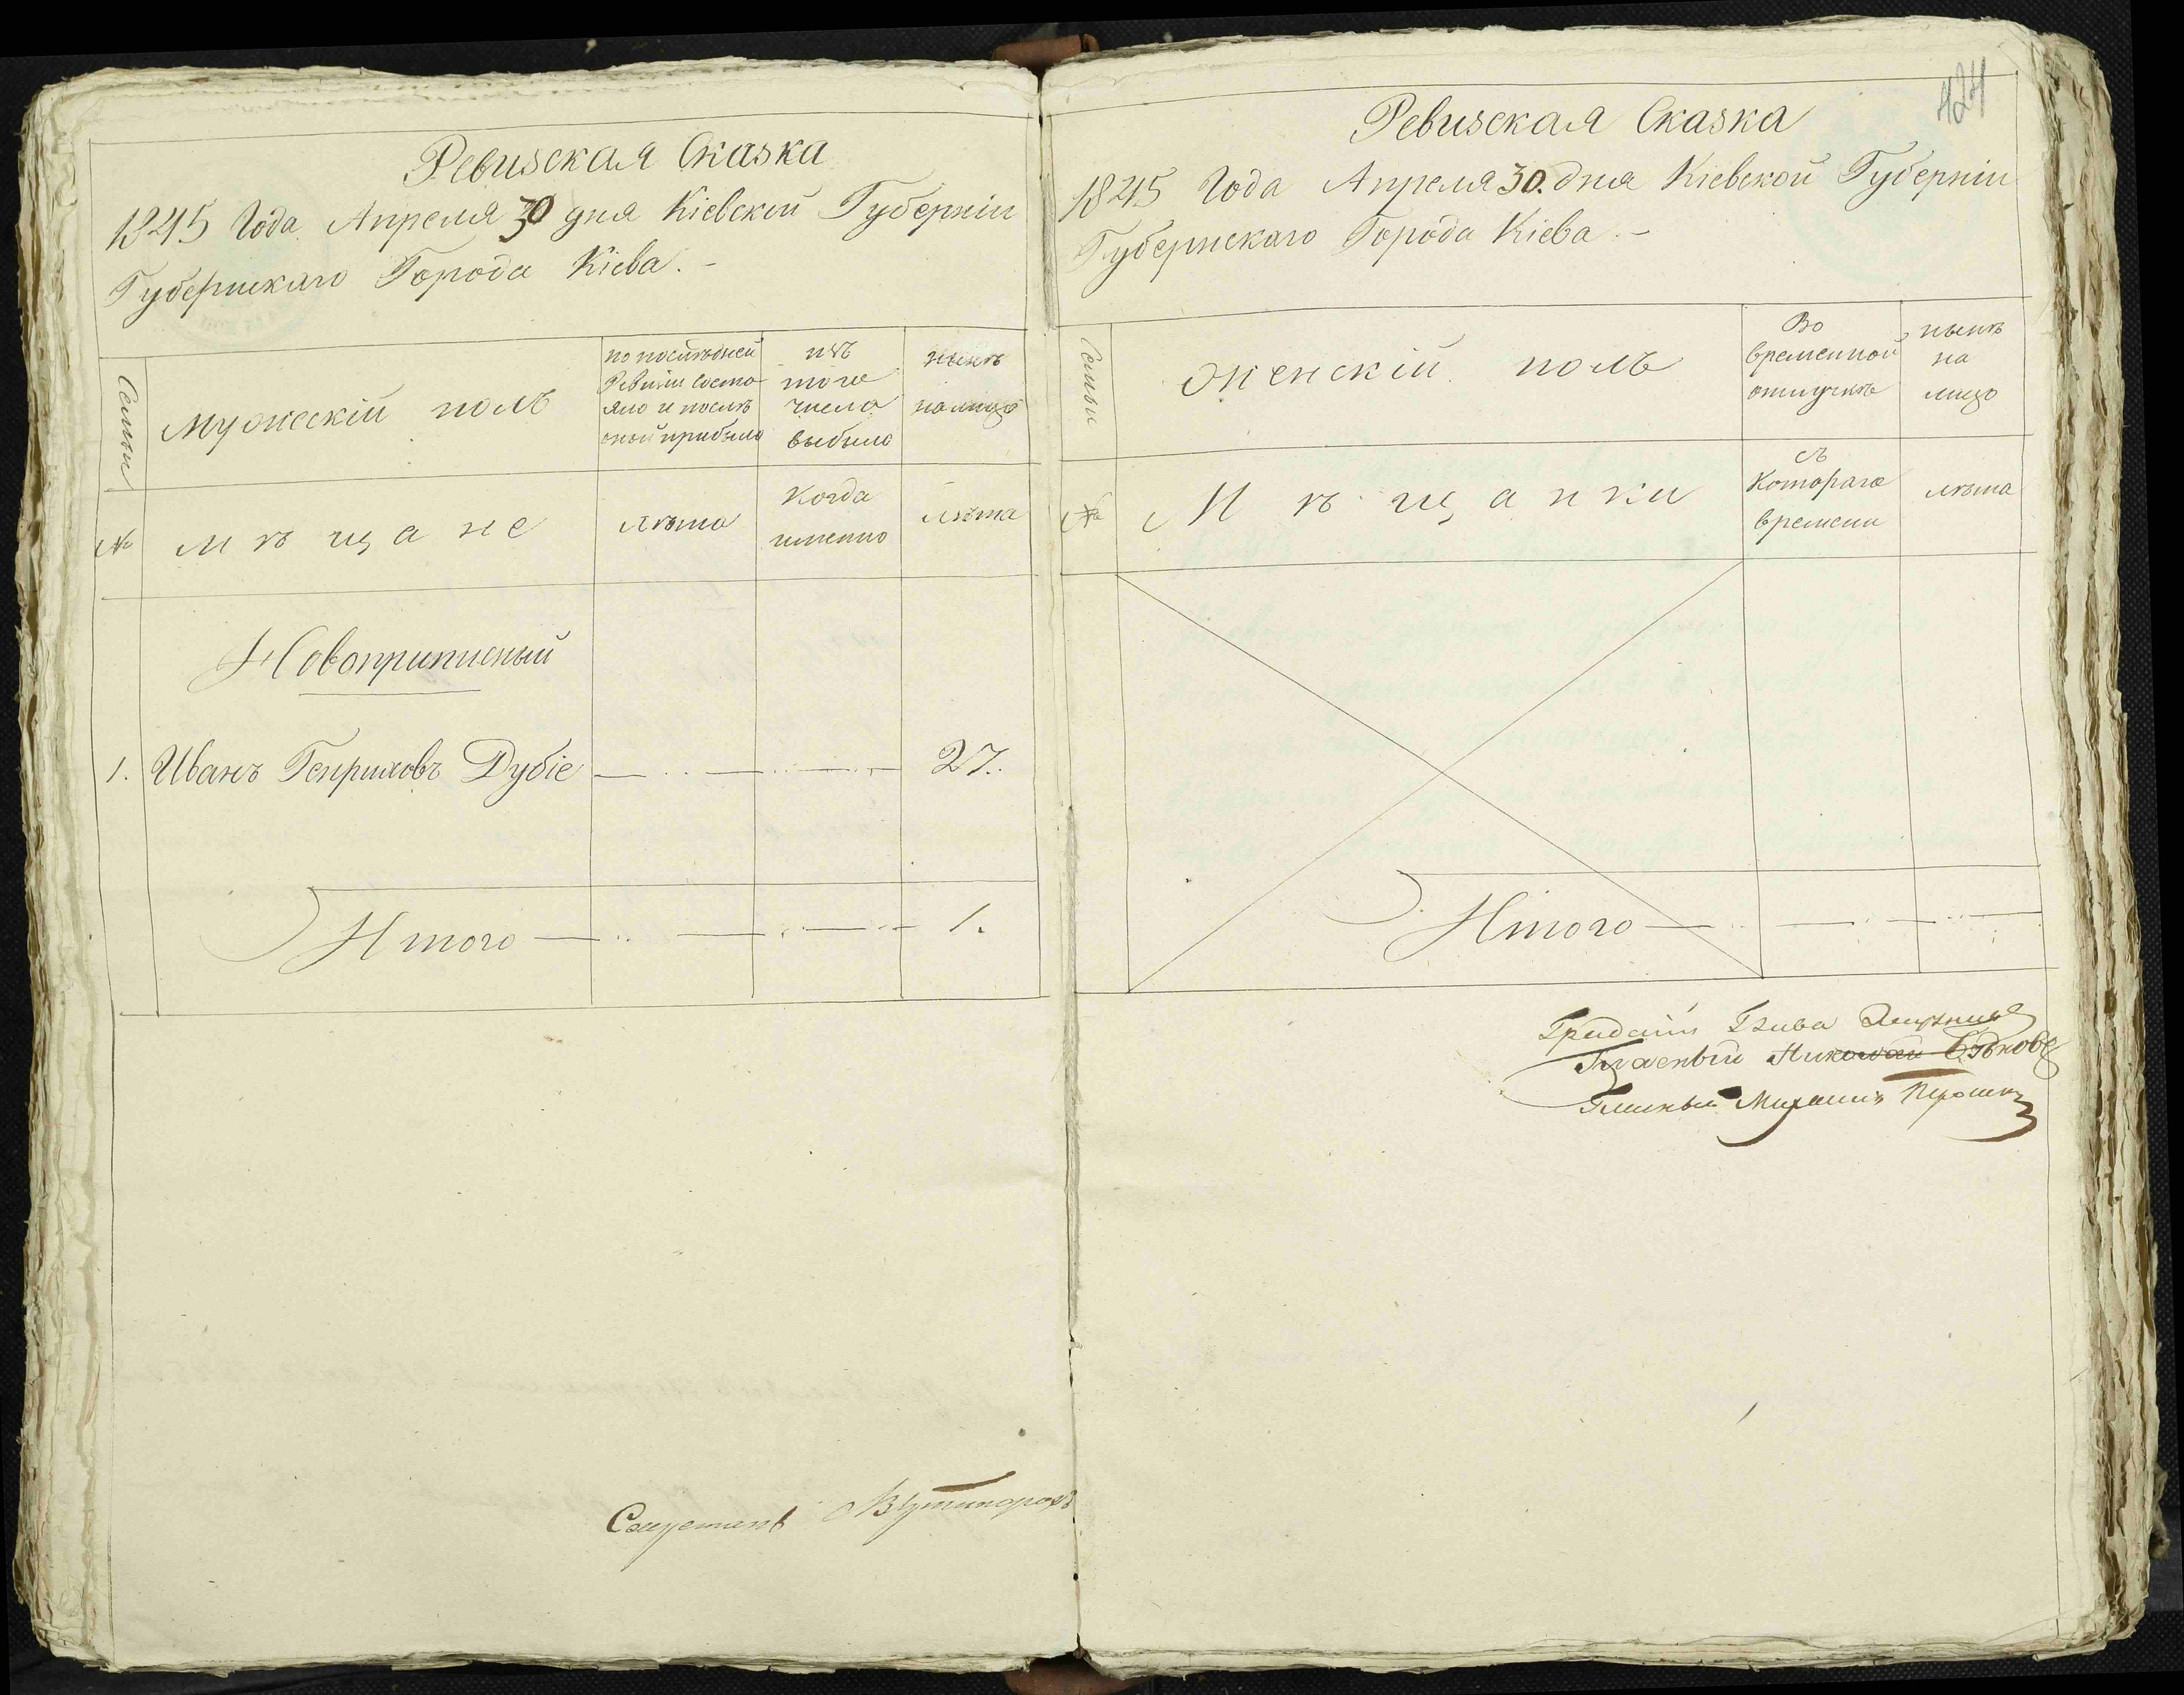 Ревизская Сказка
1845 Года Апреля 30 дня Кіевской Губерніи
Губернскаго Города Кіева.-
Семьи
мужескій полъ
по послѣдней
Ревизіи состо
яло и послѣ
оной прибыло
изъ
того
числа
выбыло
нынѣ
на лицо
№
мѣщане
лѣта
Когда
именно
лѣта
Новоприписный
1. Иванъ Генриховъ Дубіе 27.
Итого 1.
424
Ревизская Сказка
1845 Года Апреля 30. дня Кіевской Губерніи
Губернскаго Города Кіева.-
Семьи
женскій полъ
Во
временной
отлучкѣ
нынѣ
на
лицо
№
Мѣщанки
съ
Котораго
времени
лѣта
Итого
Голова
Гласный Николай
Гласный Михаилъ